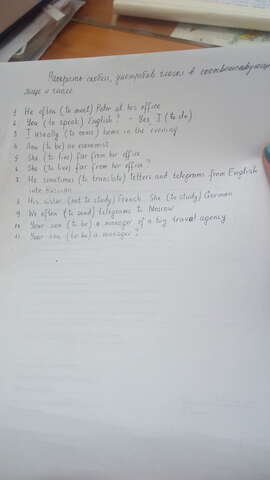 Раскройте скобки, употребив глагол в соответствующем
лице и числе
1 He often (to meet) Peter at his office
2 You (to speak) English? - Yes, I (to do)
3 I usually (to come) home in the evening
4 Ann (to be) an economist
5 She (to live) far from her office
6 She (to live) far from her office?
7 He sometimes (to translate) letters and telegrams from English
into Russian
8 His sister (not to study) French. She (to study) German
9 We often (to send) telegrams to Moscow
10 Your son (to be) a manager of a big travel agency
11 Your son (to be) a manager?